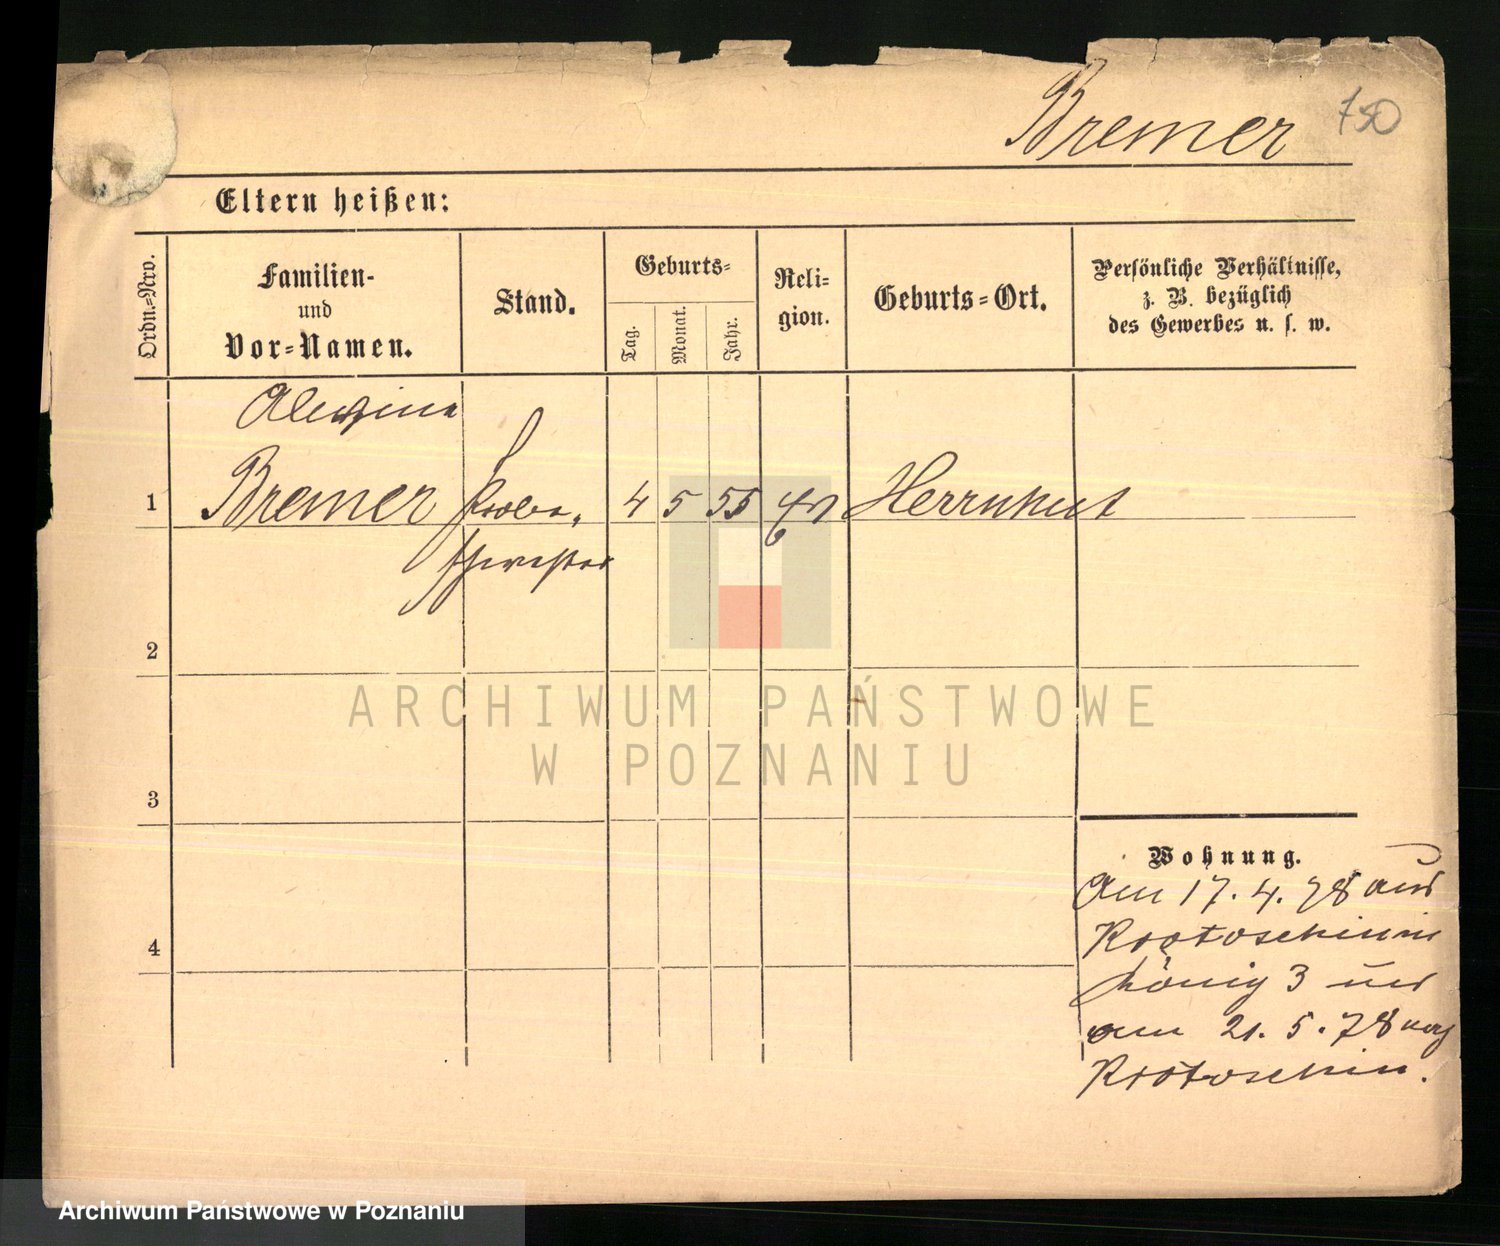 Bremer 750
Eltern heißen:
Ordn.-Nro.
Familien-
und
Vor-Namen.
Stand.
Geburts-
Tag.
Monat.
Jahr.
Reli-
gion.
Geburts-Ort.
Persönliche Verhältnisse,
z. B. bezüglich
des Gewerbes u. s. w.
Alwine
1 Bremer Probe- 4 5 55 ev Herrnhut
schwester
2
ARCHIWUM PAŃSTWOWE
W POZNANIU
3
Wohnung.
Am 17. 4. 78 aus
Krotoschin in
König 3 und
am 21. 5. 78 nach
Krotoschin.
4
Archiwum Państwowe w Poznaniu